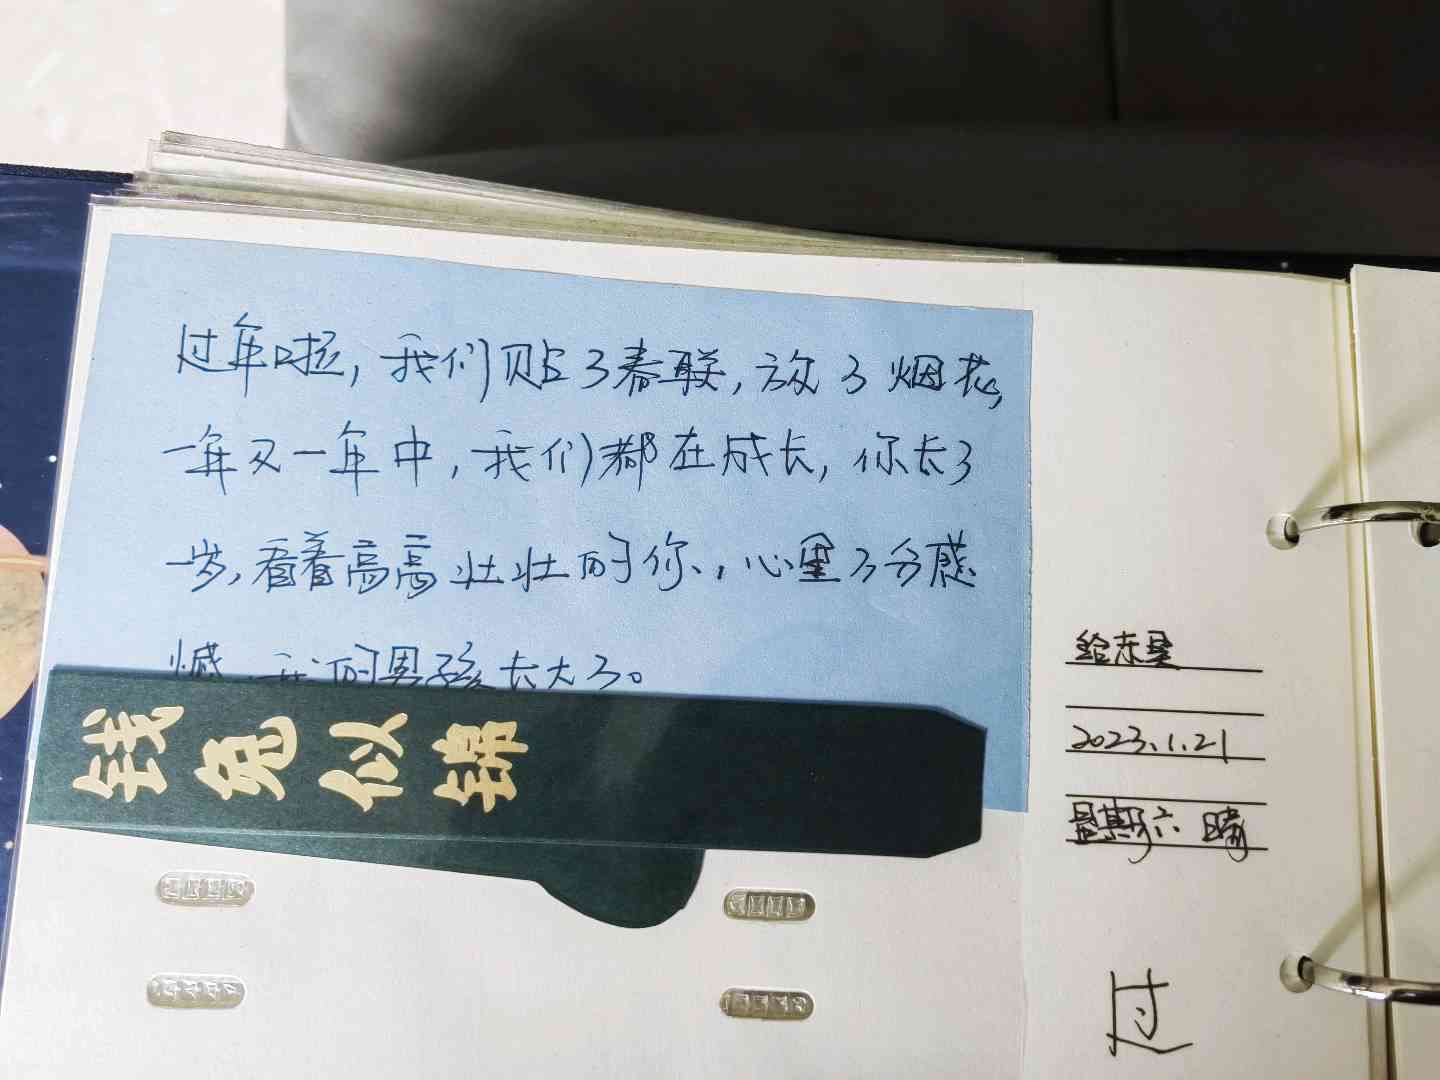 过年啦，我们贴了春联，放了烟花，
一年又一年中，我们都在成长，你长了
一岁，看着高高壮壮的你，心里万分感
慨，我的男孩长大了。
钱兔似锦
2023.1.21
星期六 晴
过